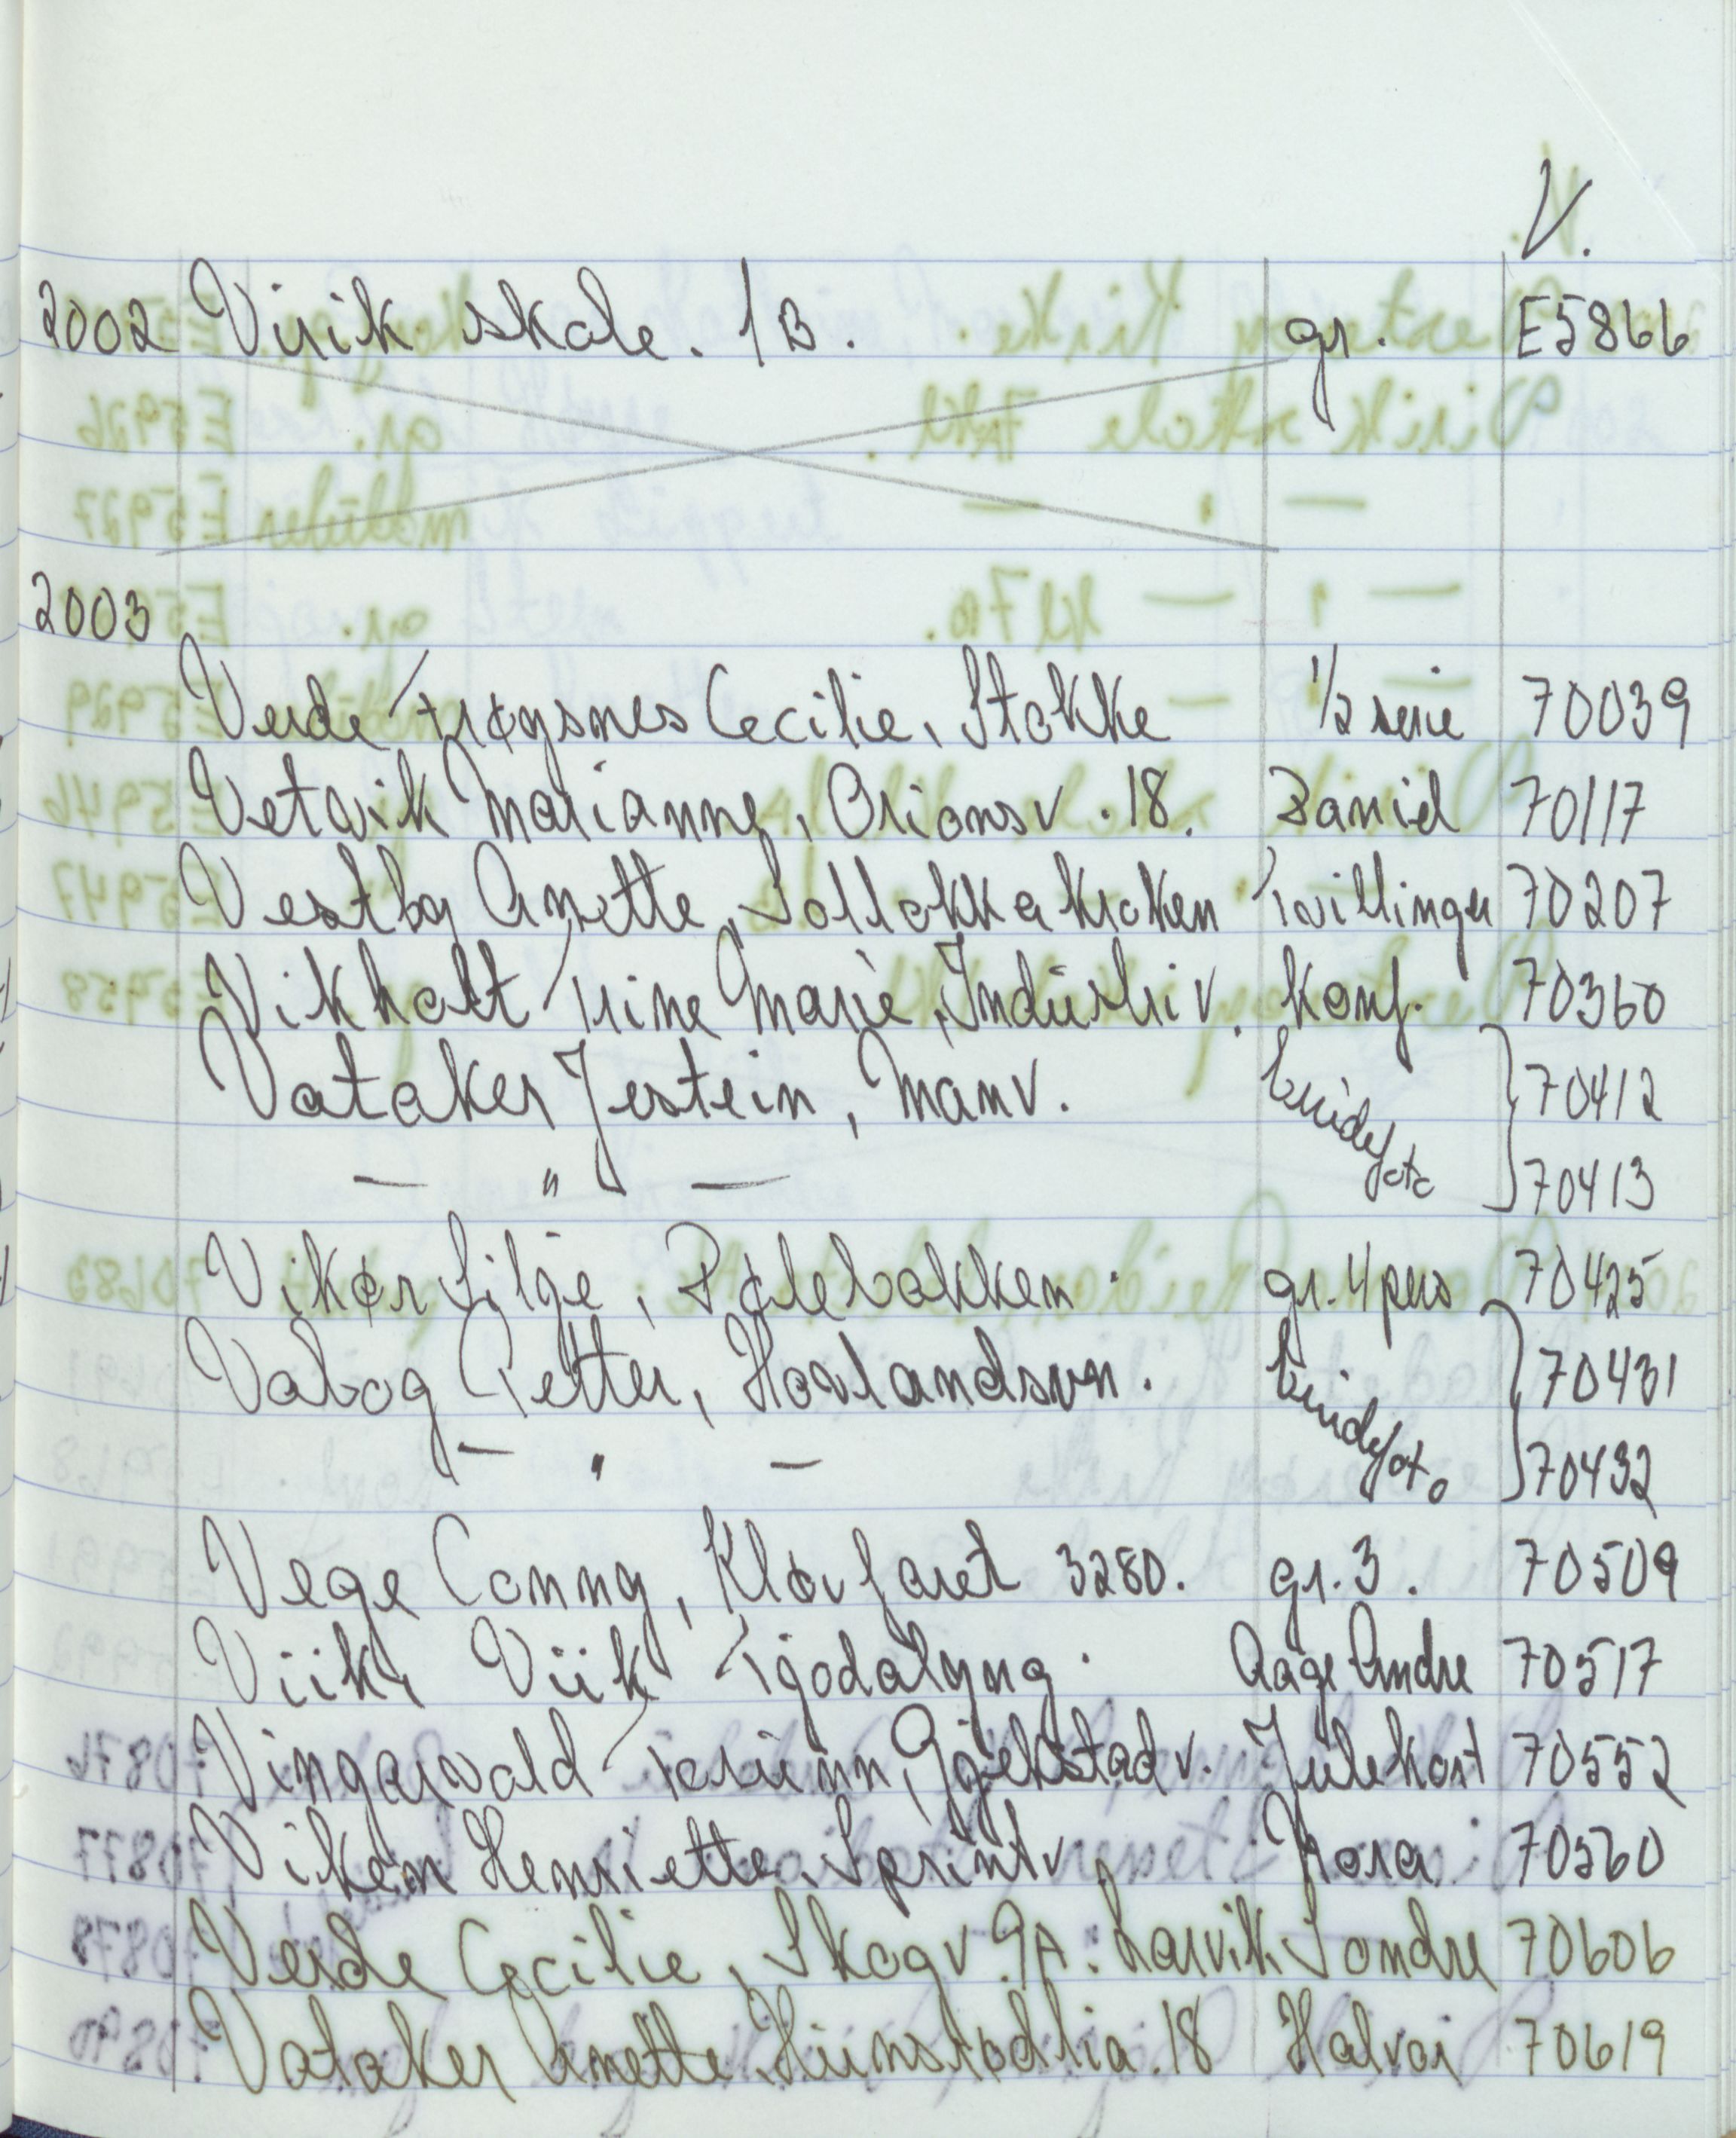 V.
2002 Virik skole. 1B. gr. E5866
2003
Verde Trøgsnes Cecilie, Stokke 1/2 serie 70039
Vetvik Marianne, Orionsv. 18. Daniel 70117
Vestby Anette, Solløkka kroken Tvillinger 70207
Vikholt Trine Marie, Industriv. konf. 70360
Vataker Jostein, Manv. brudefoto 70412
— " — 70413
Vikør Silje, Pølebakken. gr. 4 pers 70425
Valvog Petter, Hovlandsvn. brudefoto 70431
— " — 70432
Vege Conny, Kløvfaret 3280. gr. 3. 70509
Viik, Viik Tjodalyng. Aage Andre 70517
Vingarvold Torunn, Gjekstadv. Julekort 70552
Viken Henriette, Sprintv, Nora 70560
Verde Cecilie, Skogv 9A. Larvik Sondre 70606
Vataker Anette, Hunstodlia. 18 Halvor 70619